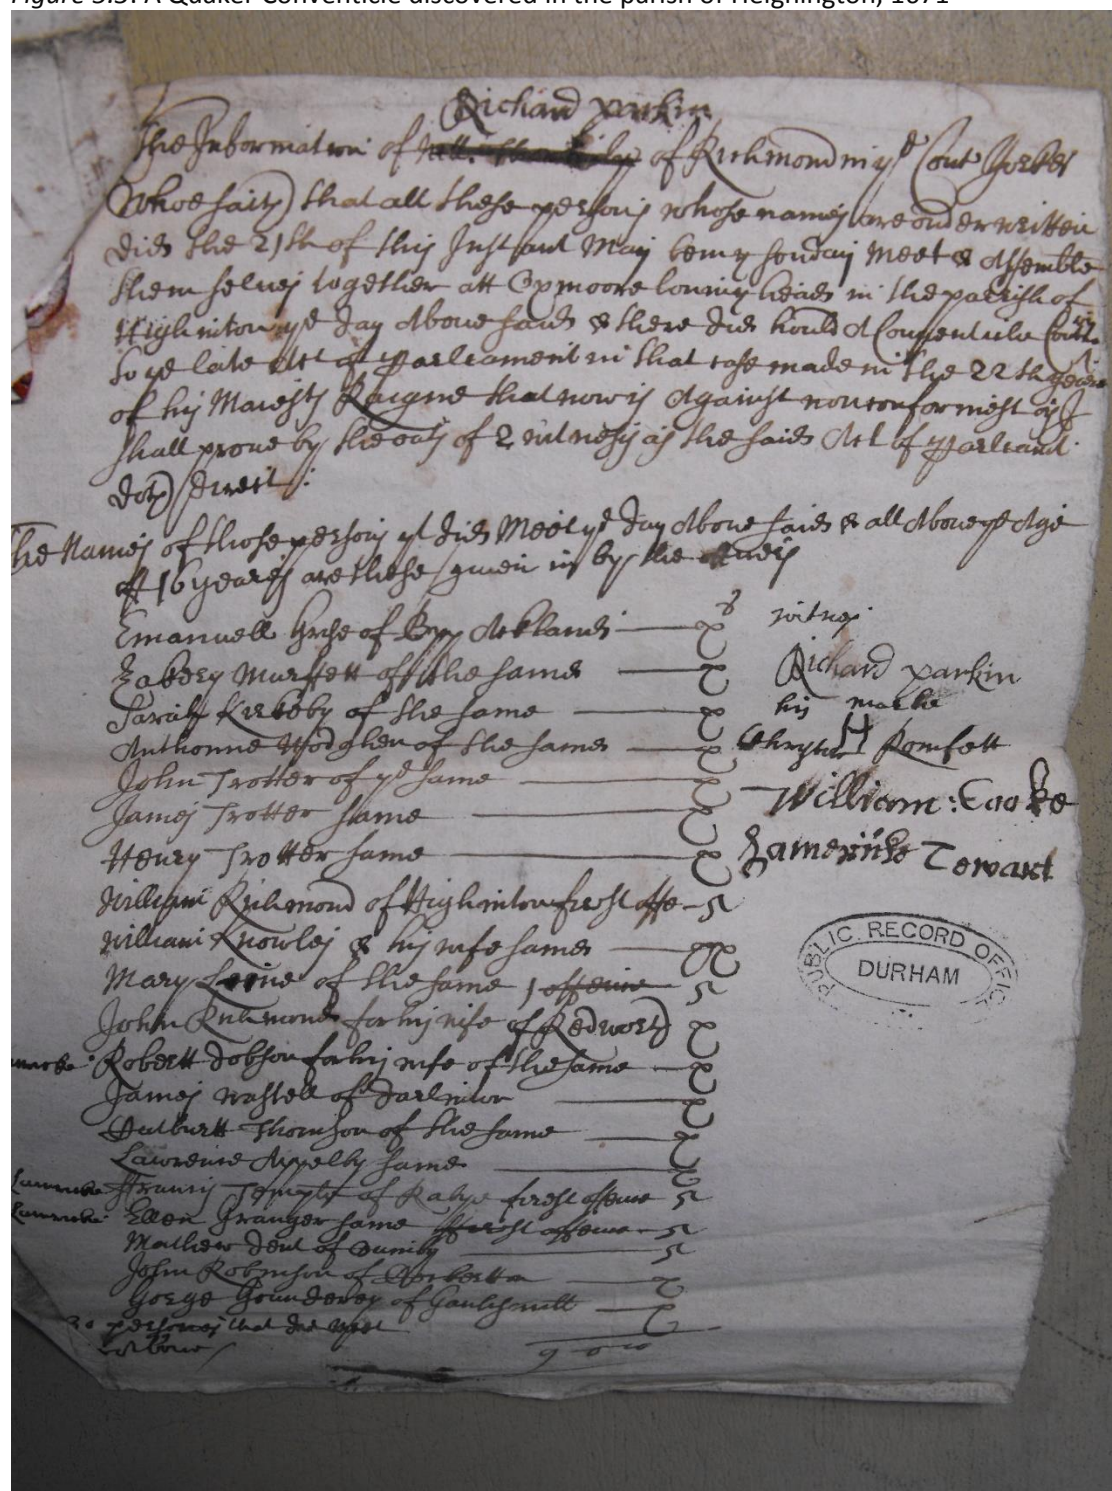 Figure 3.3: A Quaker Conventicle discovered in the parish of Heighington, 1671
Richard parkin
The Information of of Richmond in ye Cont Yorke
Whoe saith that all these persons whose names are onderwritten
did the 21th of this Instant May being sonday Meet & Assemble
them selves together att loning heads in the parrish of
Highinton ye day Above said & there did hould A Conventicle
to ye late Act of Parleament in that case made in the 22th yeare
of his Maiesty Raigne that now is Against nonconformest as I
shall prove by the oath of 2 witnesss as the said Act of
doth direct:
The Names of those persons yt did Meet ye day Above said & all Above ye Age
of 16 yeares are these given in by the
Emanuell of Bpp Ackland
of the same
Sarah Kirkby of the same
Anthonne of the same
John Trotter of ye same
James Trotter same
Henry Trotter same
William Richmond of Highinton first offe 5
William Knowles & his wife same
Mary of the same 1 offence 5
John Richmond for his wife of Redworth
Robertt Dobson for his wife of the same
James Wastell of Darlinton
Cutburtt Thomson of the same
Lawrence Appelby same
Francis Temple of Raby first offence 5
Ellen Granger same first offence 5
Mathew Dent of 5
John Robinson of
Gorge of
20 persones that did meet
witnes
Richard parkin
his marke
H
William: Cooke
Tewart
PUBLIC RECORD OFFICE
DURHAM